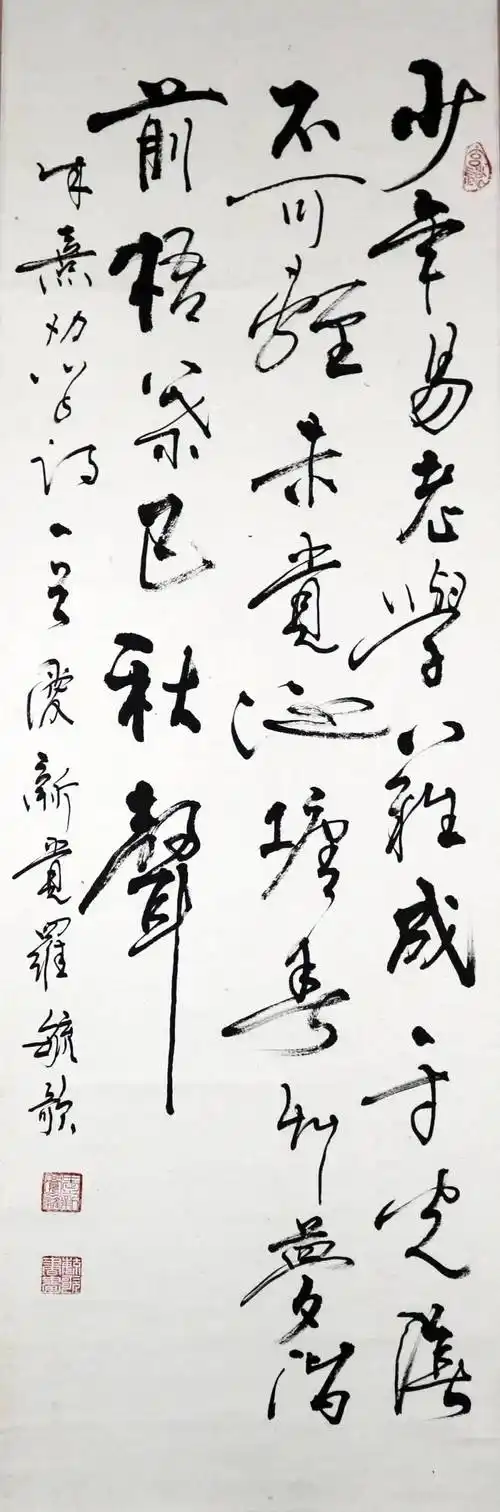 少年易老學難成一寸光陰
不可輕未覺池塘春草夢階
前梧葉已秋聲
朱熹劝学詩一首愛新覺羅毓歆